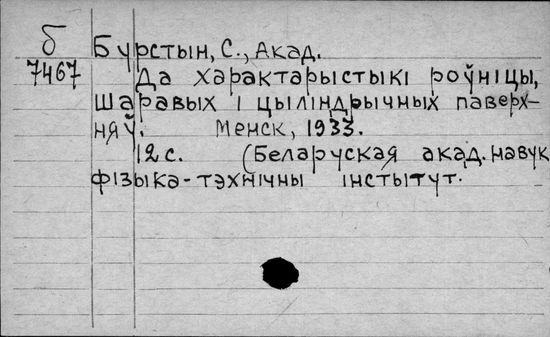 б
7467
Бурстын, С., Акад.
Да характарыстыкі роўніцы,
шаравых і цыліндрычных паверх-
няў. Менск, 1933.
12 с. (Беларуская акад. навук
фізыка-тэхнічны інстытут.